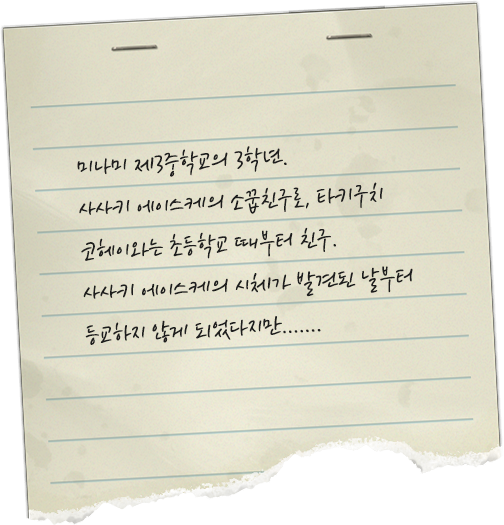 미나미 제3중학교의 3학년.
사사키 에이스케의 소꿉친구로, 타키구치
코헤이와는 초등학교 때부터 친구.
사사키 에이스케의 시체가 발견된 날부터
등교하지 않게 되었다지만.......